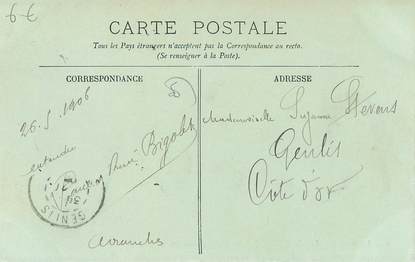 6 €
CARTE POSTALE
Tous les Pays étrangers n'acceptent pas la Correspondance au recto.
(Se renseigner à la Poste).
CORRESPONDANCE
ADRESSE
26.5.1906
Mademoiselle Suzanne Stevens
Genlis
Côte d'or
Bigolet
GENLIS
Avranches